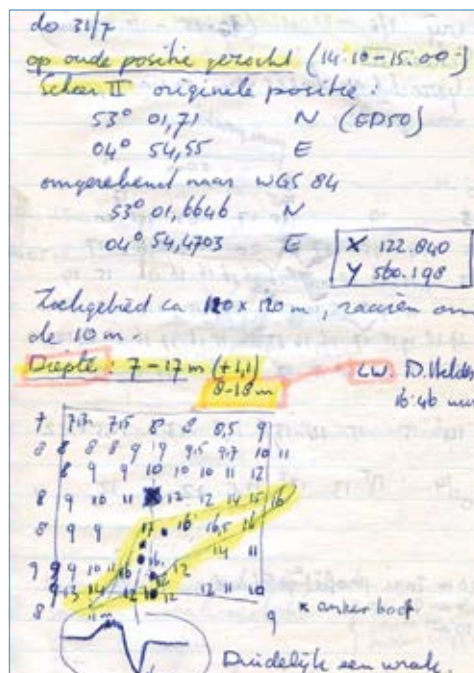 do 31/7
op oude positie gezocht (14.10-15.00)
Scheer II originele positie:
53° 01,71 N (ED50)
04° 54,55 E
omgerekend naar WGS 84
53° 01,6646 N
04° 54,4703 E
X 122.840
Y 560.198
Zoekgebied ca 120 x 120 m, raaien om
de 10 m.
Diepte: 7-17 m (+1,1)
8-18 m
LW. D.Helder
16.46 uur
7 7,7 7,5 8 8 8,5 9
8 8 8 8 9 9 9,5 9,7 10 11
8 9 9 10 10 10 11 12
8 9 10 11 12 12 14 15 16
8 9 9 17 16 16,5 16
14 11
9 9 9 10 11 16 16 12
9 13 14 12 10 12 12 11 10
8 11 m 9
x ankerboei
Duidelijk een wrak.